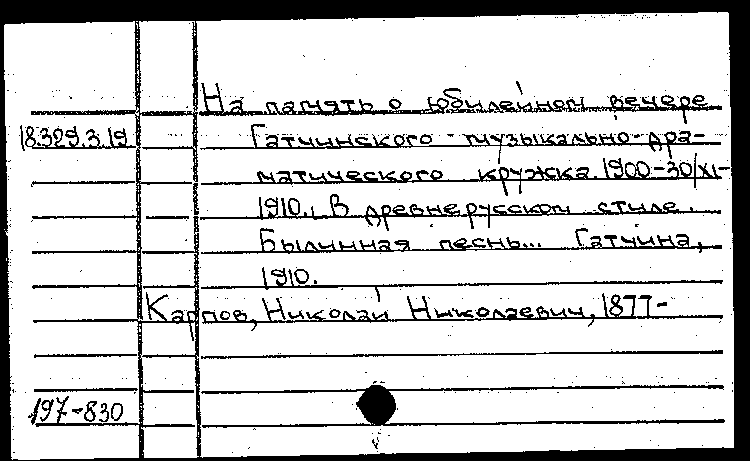 На память о юбилейном вечере
18.329.3.19 Гатчинского музыкально-дра-
матического кружка. 1900-30/XI-
1910. В древнерусском стиле.
Былинная песнь... Гатчина,
1910.
Карпов, Николай Николаевич, 1877-
197-830